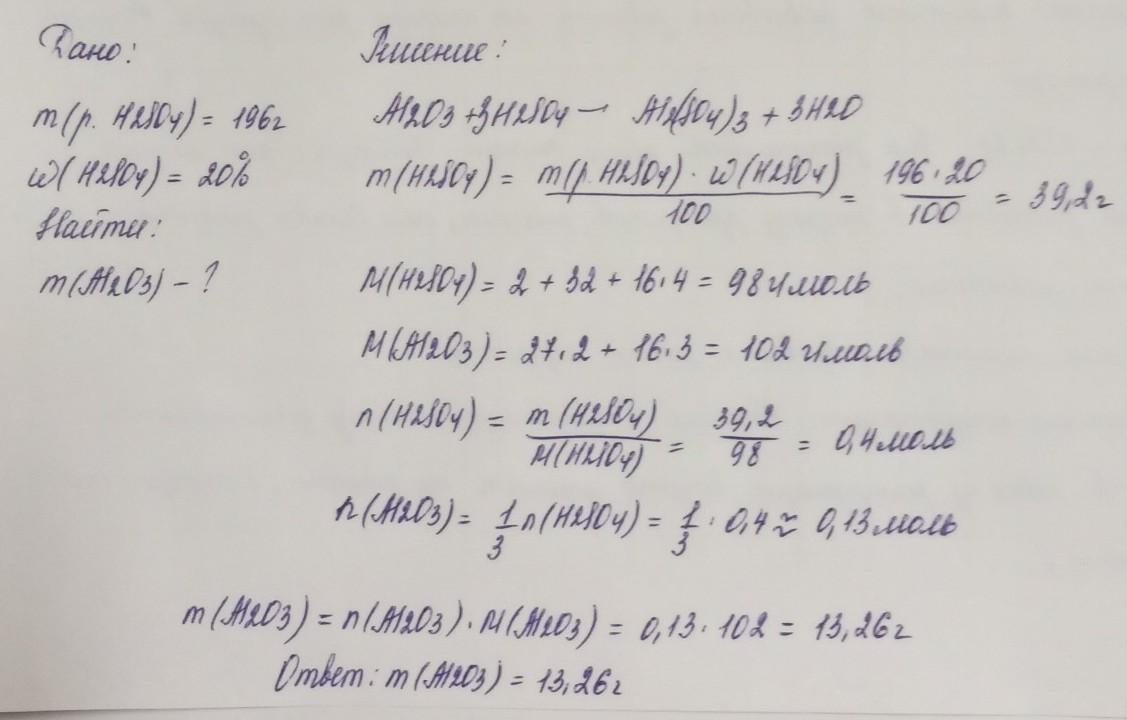 Дано:
m(р. H2SO4) = 196г
w(H2SO4) = 20%
Найти:
m(Al2O3) - ?
Решение:
Al2O3 + 3H2SO4 — Al2(SO4)3 + 3H2O
m(H2SO4) = m(р. H2SO4) · w(H2SO4) / 100 = 196 · 20 / 100 = 39,2г
M(H2SO4) = 2 + 32 + 16·4 = 98 г/моль
M(Al2O3) = 27·2 + 16·3 = 102 г/моль
n(H2SO4) = m(H2SO4) / M(H2SO4) = 39,2 / 98 = 0,4моль
n(Al2O3) = 1/3 n(H2SO4) = 1/3 · 0,4 ≈ 0,13моль
m(Al2O3) = n(Al2O3) · M(Al2O3) = 0,13 · 102 = 13,26г
Ответ: m(Al2O3) = 13,26г